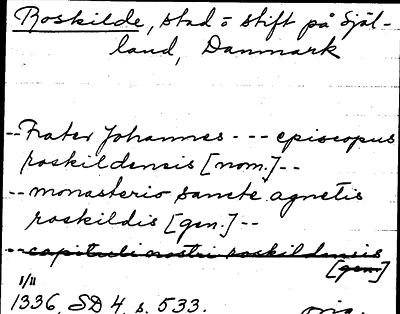 Roskilde, stad o stift på Själ-
land, Danmark
--Frater Johannes --- episcopus
roskildensis [nom.]--
--monasterio sancte agnetis
roskildis [gen.]--
--capituli nostri roskildensis
[gen.]
1/11
1336, SD 4, s. 533.
orig.